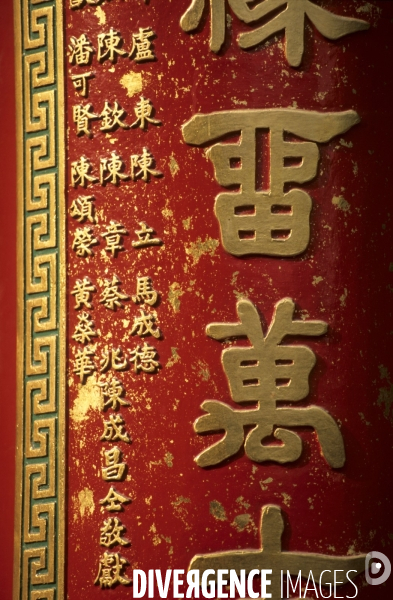 畱萬
盧東陳立馬成德
陳欽陳章蔡兆陳成昌仝敬獻
潘可賢陳頌榮黃燊華
DIVERGENCE IMAGES